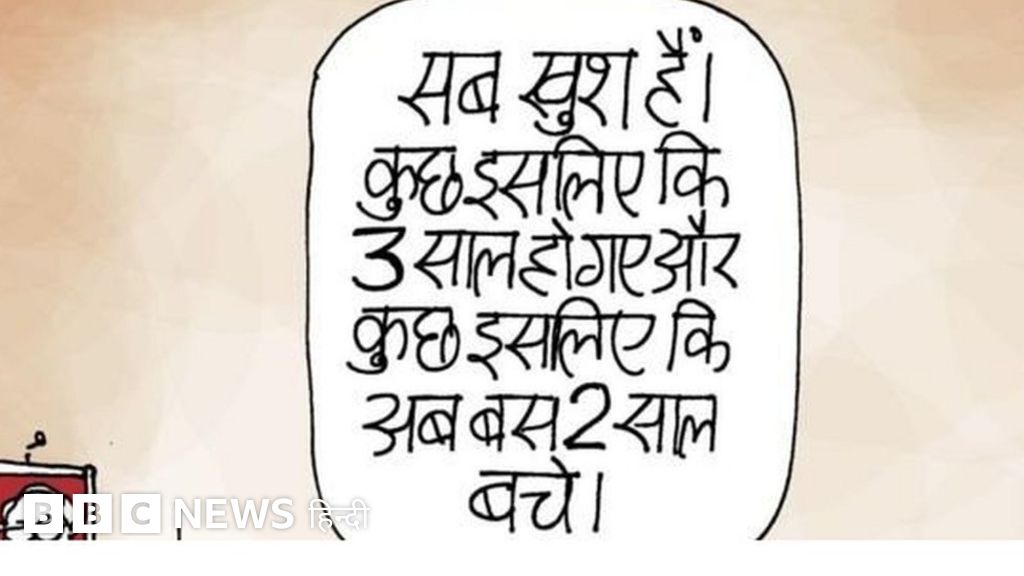 सब खुश हैं।
कुछ इसलिए कि
3 साल हो गए और
कुछ इसलिए कि
अब बस 2 साल
बचे।
BBC NEWS हिन्दी